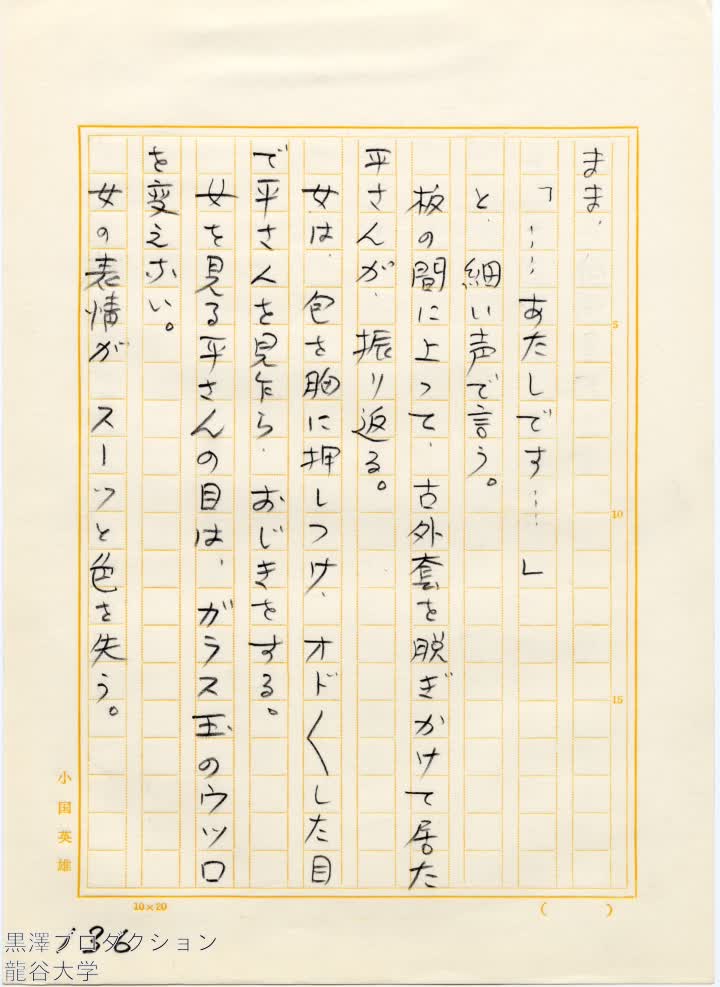 まま、
「……あたしです……」
と、細い声で言う。
板の間に上って、古外套を脱ぎかけて居た
平さんが、振り返る。
女は、包を胸に押しつけ、オド〱した目
で平さんを見乍ら、おじぎをする。
女を見る平さんの目は、ガラス玉のウツロ
を変えない。
女の表情が スーッと色を失う。
5
10
15
小国英雄
10×20
(　　)
136
黒澤プロダクション
龍谷大学